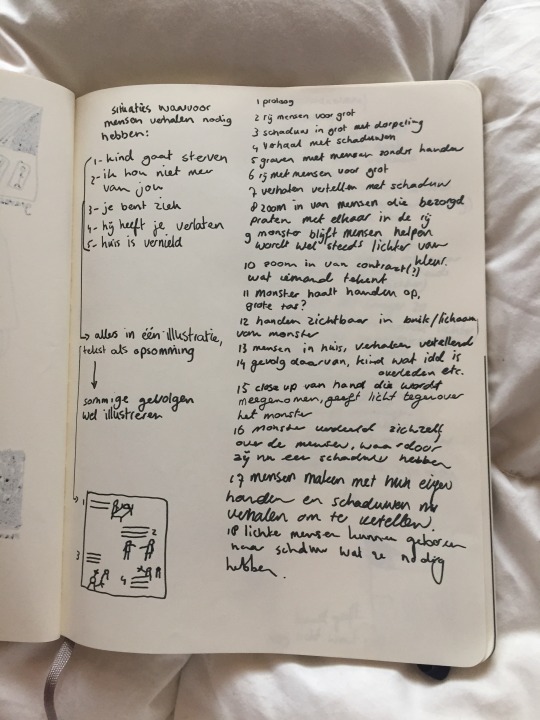 situaties waarvoor
mensen verhalen nodig
hebben:
1- kind gaat sterven
2- ik hou niet meer
van jou
3- je bent ziek
4- hij heeft je verlaten
5- huis is vernield
→ alles in één illustratie,
tekst als opsomming
sommige gevolgen
wel illustreren
1
2
3
4
1 proloog
2 rij mensen voor grot
3 schaduw in grot met dorpeling
4 verhaal met schaduwen
5 graven met mensen zonder handen
6 rij met mensen voor grot
7 verhalen vertellen met schaduw
8 zoom in van mensen die bezorgd
praten met elkaar in de rij
9 monster blijft mensen helpen
wordt wel steeds lichter van
kleur.
10 zoom in van contract(?)
wat iemand tekent
11 monster haalt handen op,
grote tas?
12 handen zichtbaar in buik/lichaam
van monster
13 mensen in huis, verhalen vertellend
14 gevolg daarvan, kind wat idd is
overleden etc.
15 close up van hand die wordt
meegenomen, geeft licht tegenover
het monster
16 monster verdeeld zichzelf
over de mensen, waardoor
zij nu een schaduw hebben
17 mensen maken met hun eigen
handen en schaduwen nu
verhalen om te vertellen.
18 lichte mensen kunnen
naar wat ze nodig
hebben.